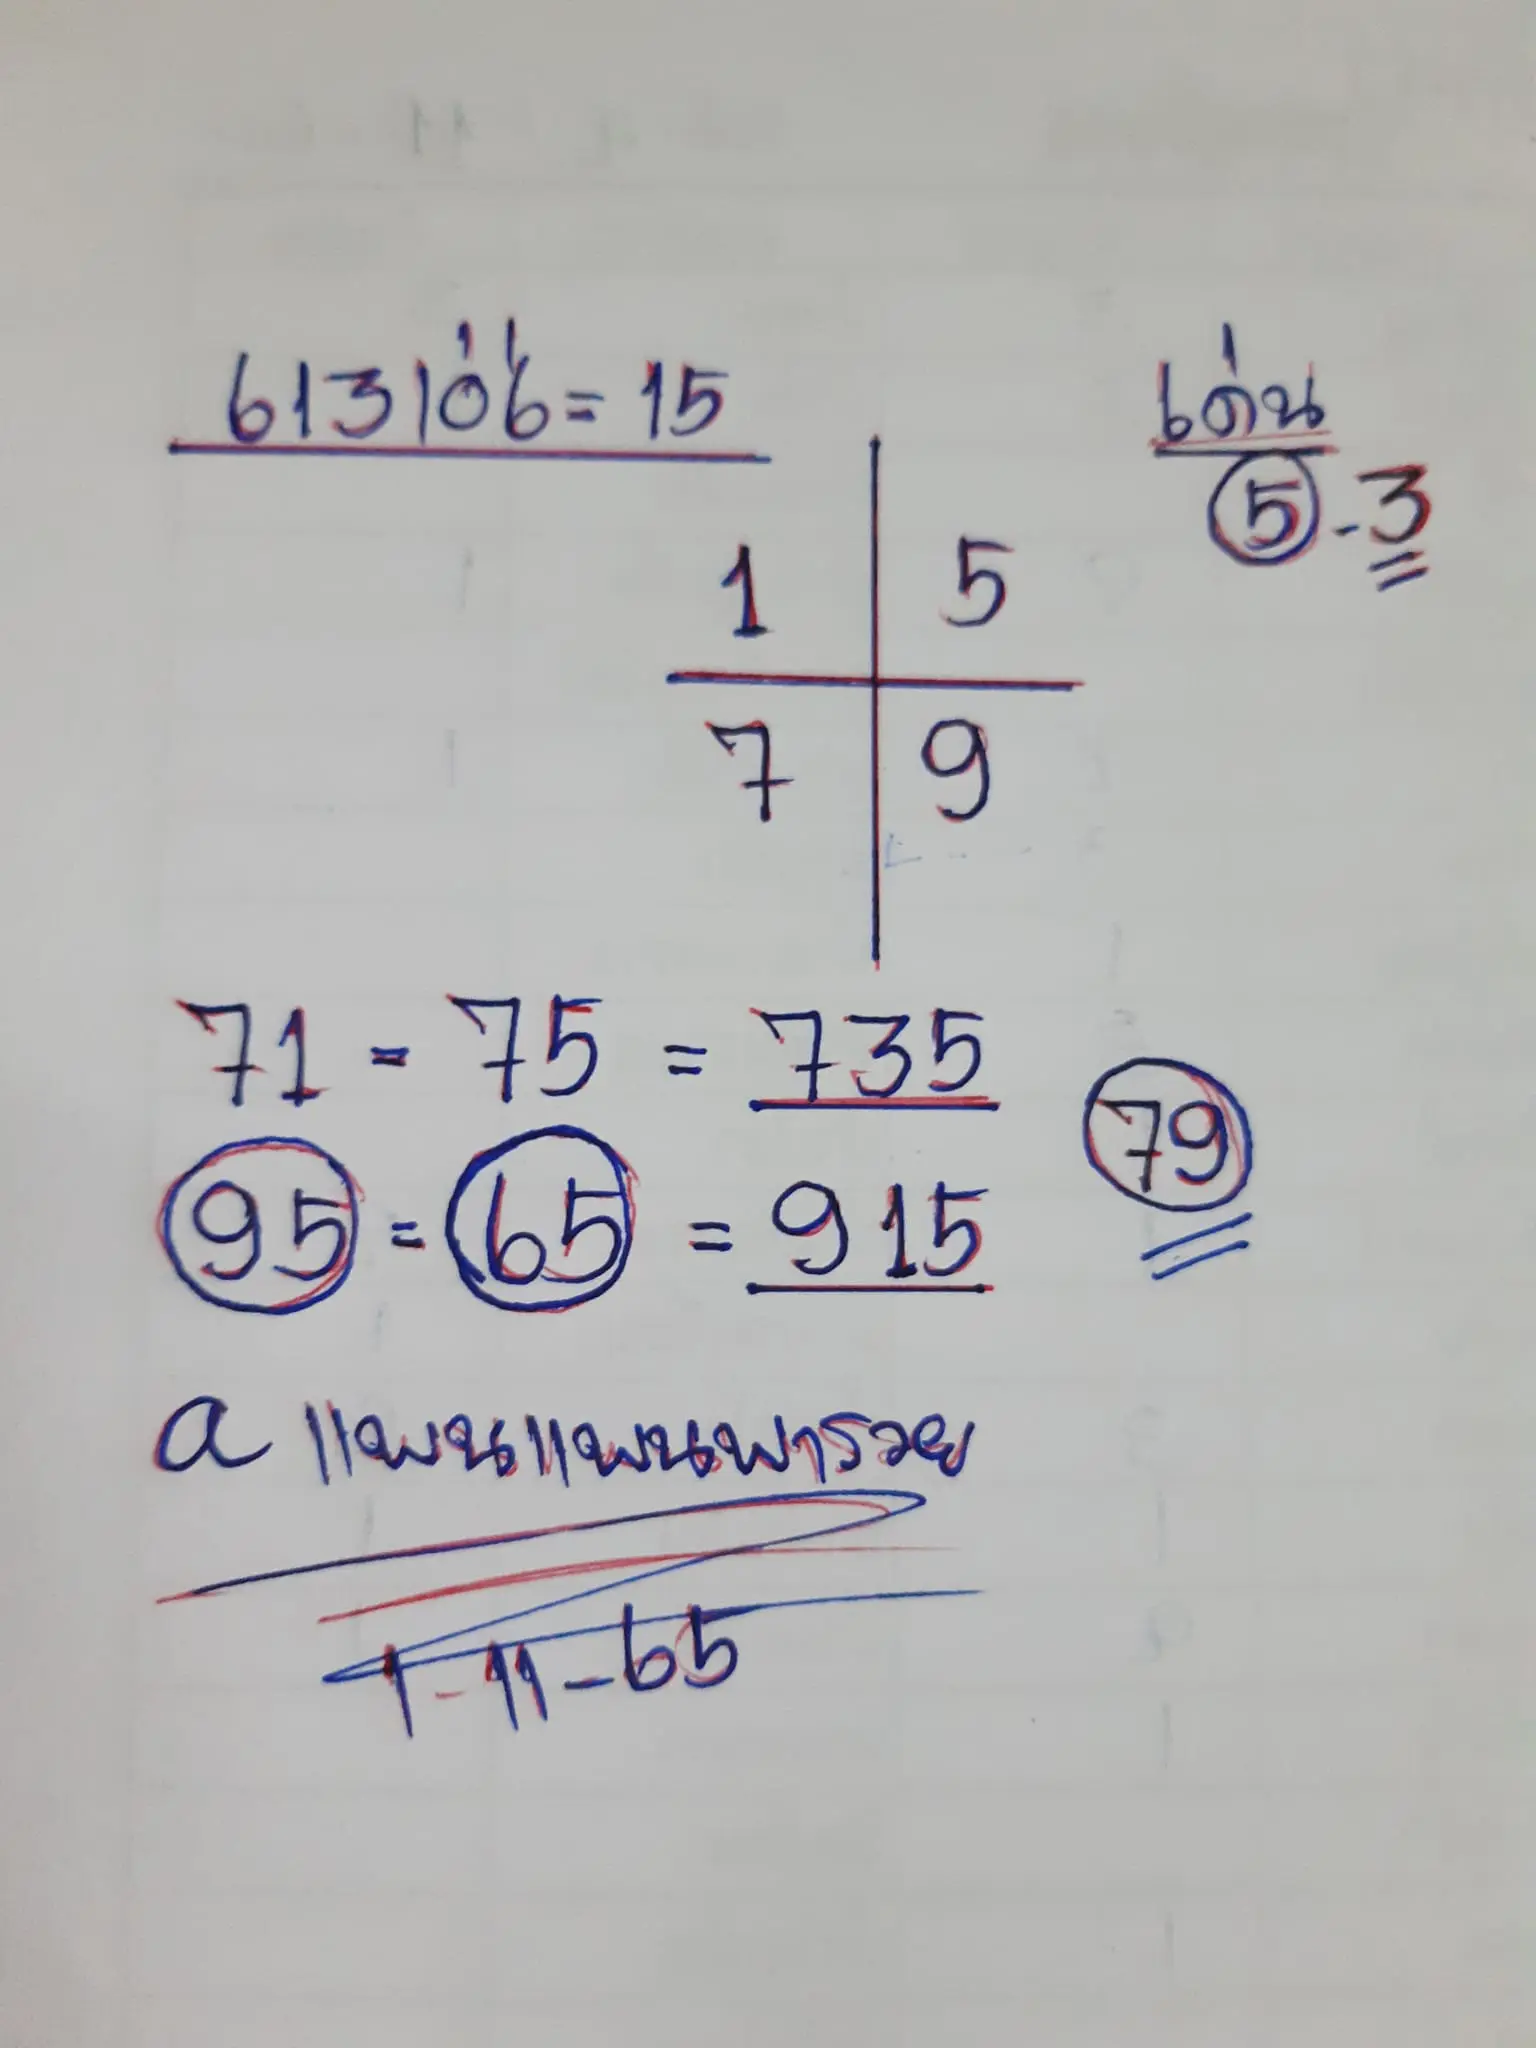 613106 = 15
เด่น
5 - 3
1 5
7 9
71 - 75 = 735
79
95 = 65 = 915
a แพนแพนพารวย
1-11-65